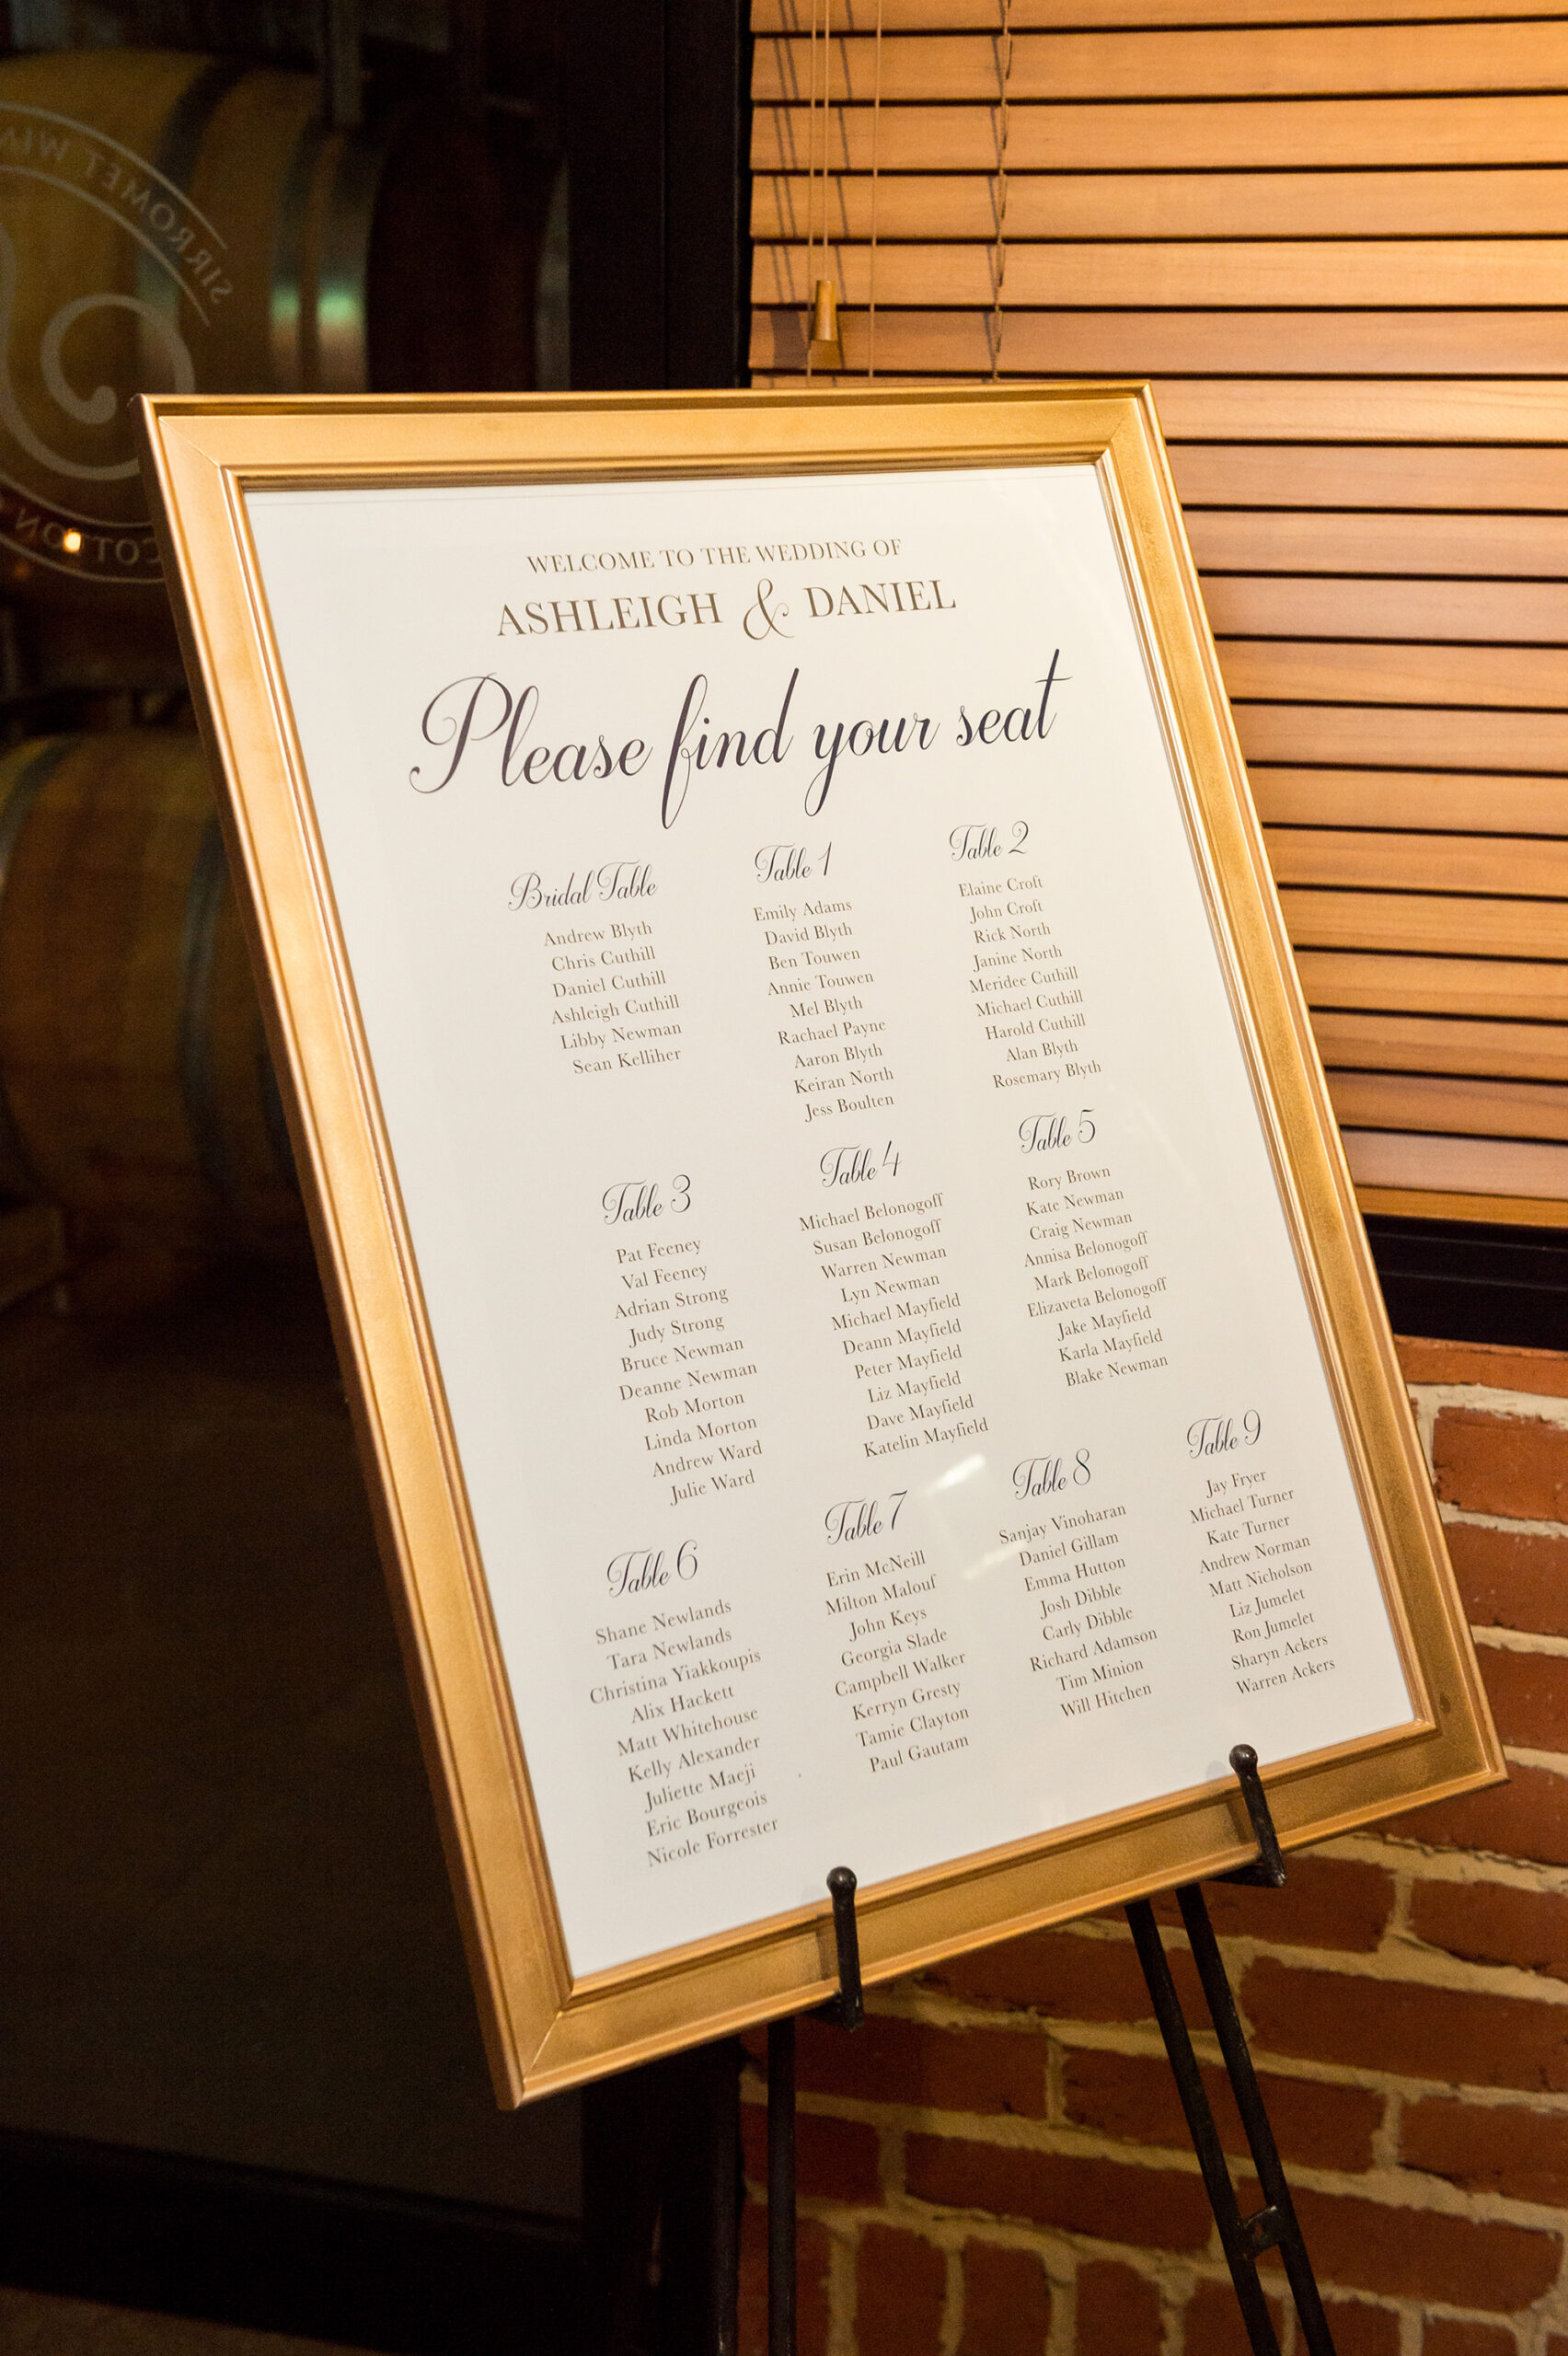 SIRROMET WIN
WELCOME TO THE WEDDING OF
ASHLEIGH & DANIEL
Please find your seat
Bridal Table
Andrew Blyth
Chris Cuthill
Daniel Cuthill
Ashleigh Cuthill
Libby Newman
Sean Kelliher
Table 1
Emily Adams
David Blyth
Ben Touwen
Annie Touwen
Mel Blyth
Rachael Payne
Aaron Blyth
Keiran North
Jess Boulten
Table 2
Elaine Croft
John Croft
Rick North
Janine North
Meridee Cuthill
Michael Cuthill
Harold Cuthill
Alan Blyth
Rosemary Blyth
Table 3
Pat Feeney
Val Feeney
Adrian Strong
Judy Strong
Bruce Newman
Deanne Newman
Rob Morton
Linda Morton
Andrew Ward
Julie Ward
Table 4
Michael Belonogoff
Susan Belonogoff
Warren Newman
Lyn Newman
Michael Mayfield
Deann Mayfield
Peter Mayfield
Liz Mayfield
Dave Mayfield
Katelin Mayfield
Table 5
Rory Brown
Kate Newman
Craig Newman
Annisa Belonogoff
Mark Belonogoff
Elizaveta Belonogoff
Jake Mayfield
Karla Mayfield
Blake Newman
Table 6
Shane Newlands
Tara Newlands
Christina Yiakkoupis
Alix Hackett
Matt Whitehouse
Kelly Alexander
Juliette Maeji
Eric Bourgeois
Nicole Forrester
Table 7
Erin McNeill
Milton Malouf
John Keys
Georgia Slade
Campbell Walker
Kerryn Gresty
Tamie Clayton
Paul Gautam
Table 8
Sanjay Vinoharan
Daniel Gillam
Emma Hutton
Josh Dibble
Carly Dibble
Richard Adamson
Tim Minion
Will Hitchen
Table 9
Jay Fryer
Michael Turner
Kate Turner
Andrew Norman
Matt Nicholson
Liz Jumelet
Ron Jumelet
Sharyn Ackers
Warren Ackers